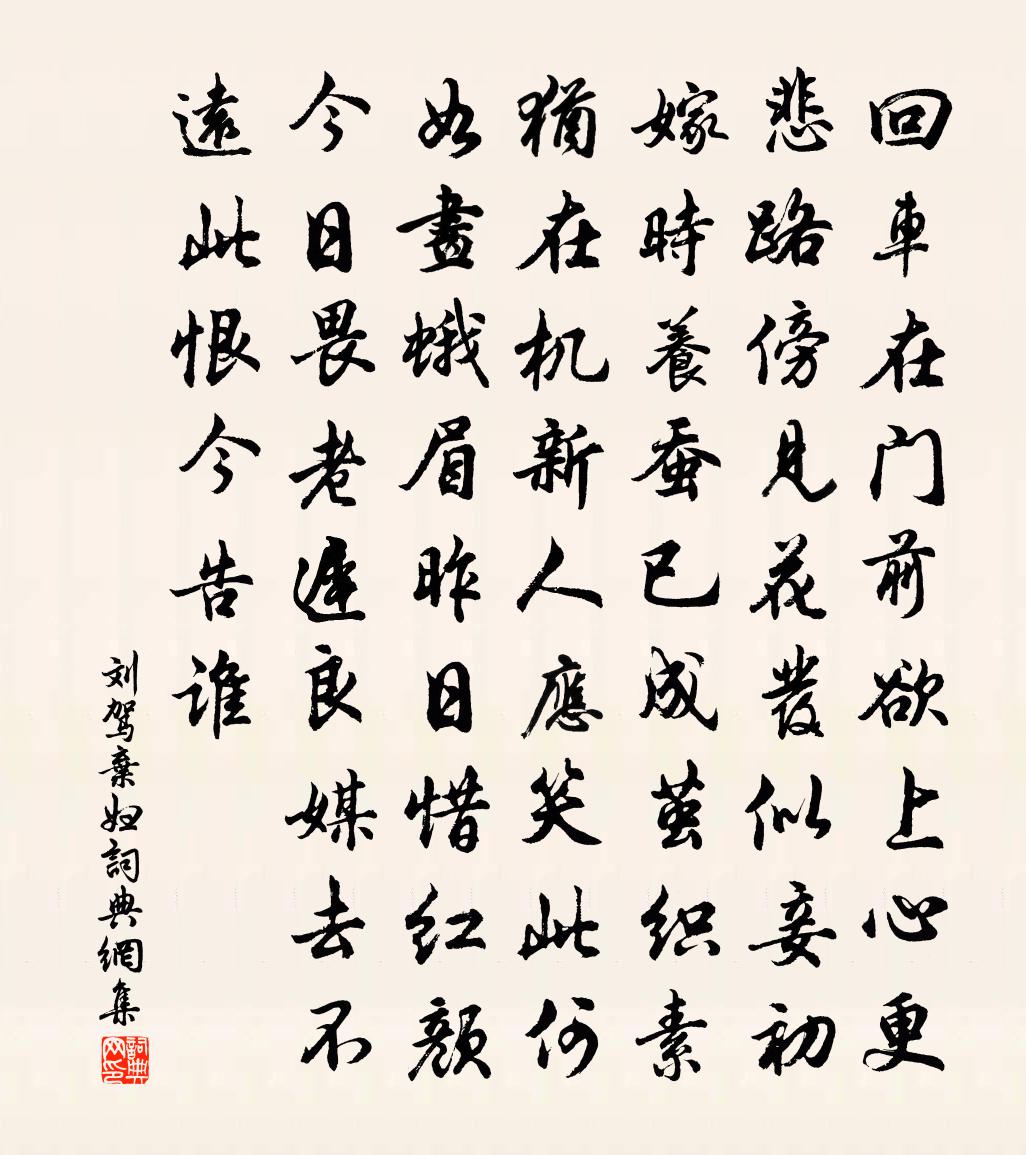 回車在门前欲上心更
悲路傍見花發似妾初
嫁時養蚕已成茧织素
猶在机新人應笑此何
如畫蛾眉昨日惜红颜
今日畏老遲良媒去不
遠此恨今告谁
刘驾棄妇詞典網集
詞典网印